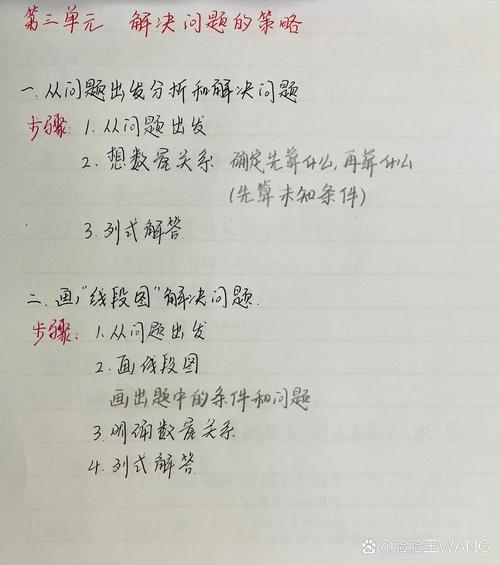 第三单元 解决问题的策略
一.从问题出发分析和解决问题
步骤: 1.从问题出发
2.想数量关系 确定先算什么,再算什么
(先算未知条件)
3.列式解答
二.画"线段图"解决问题.
步骤: 1.从问题出发
2.画线段图
画出题中的条件和问题.
3.明确数量关系
4.列式解答
@脸脸王WANG